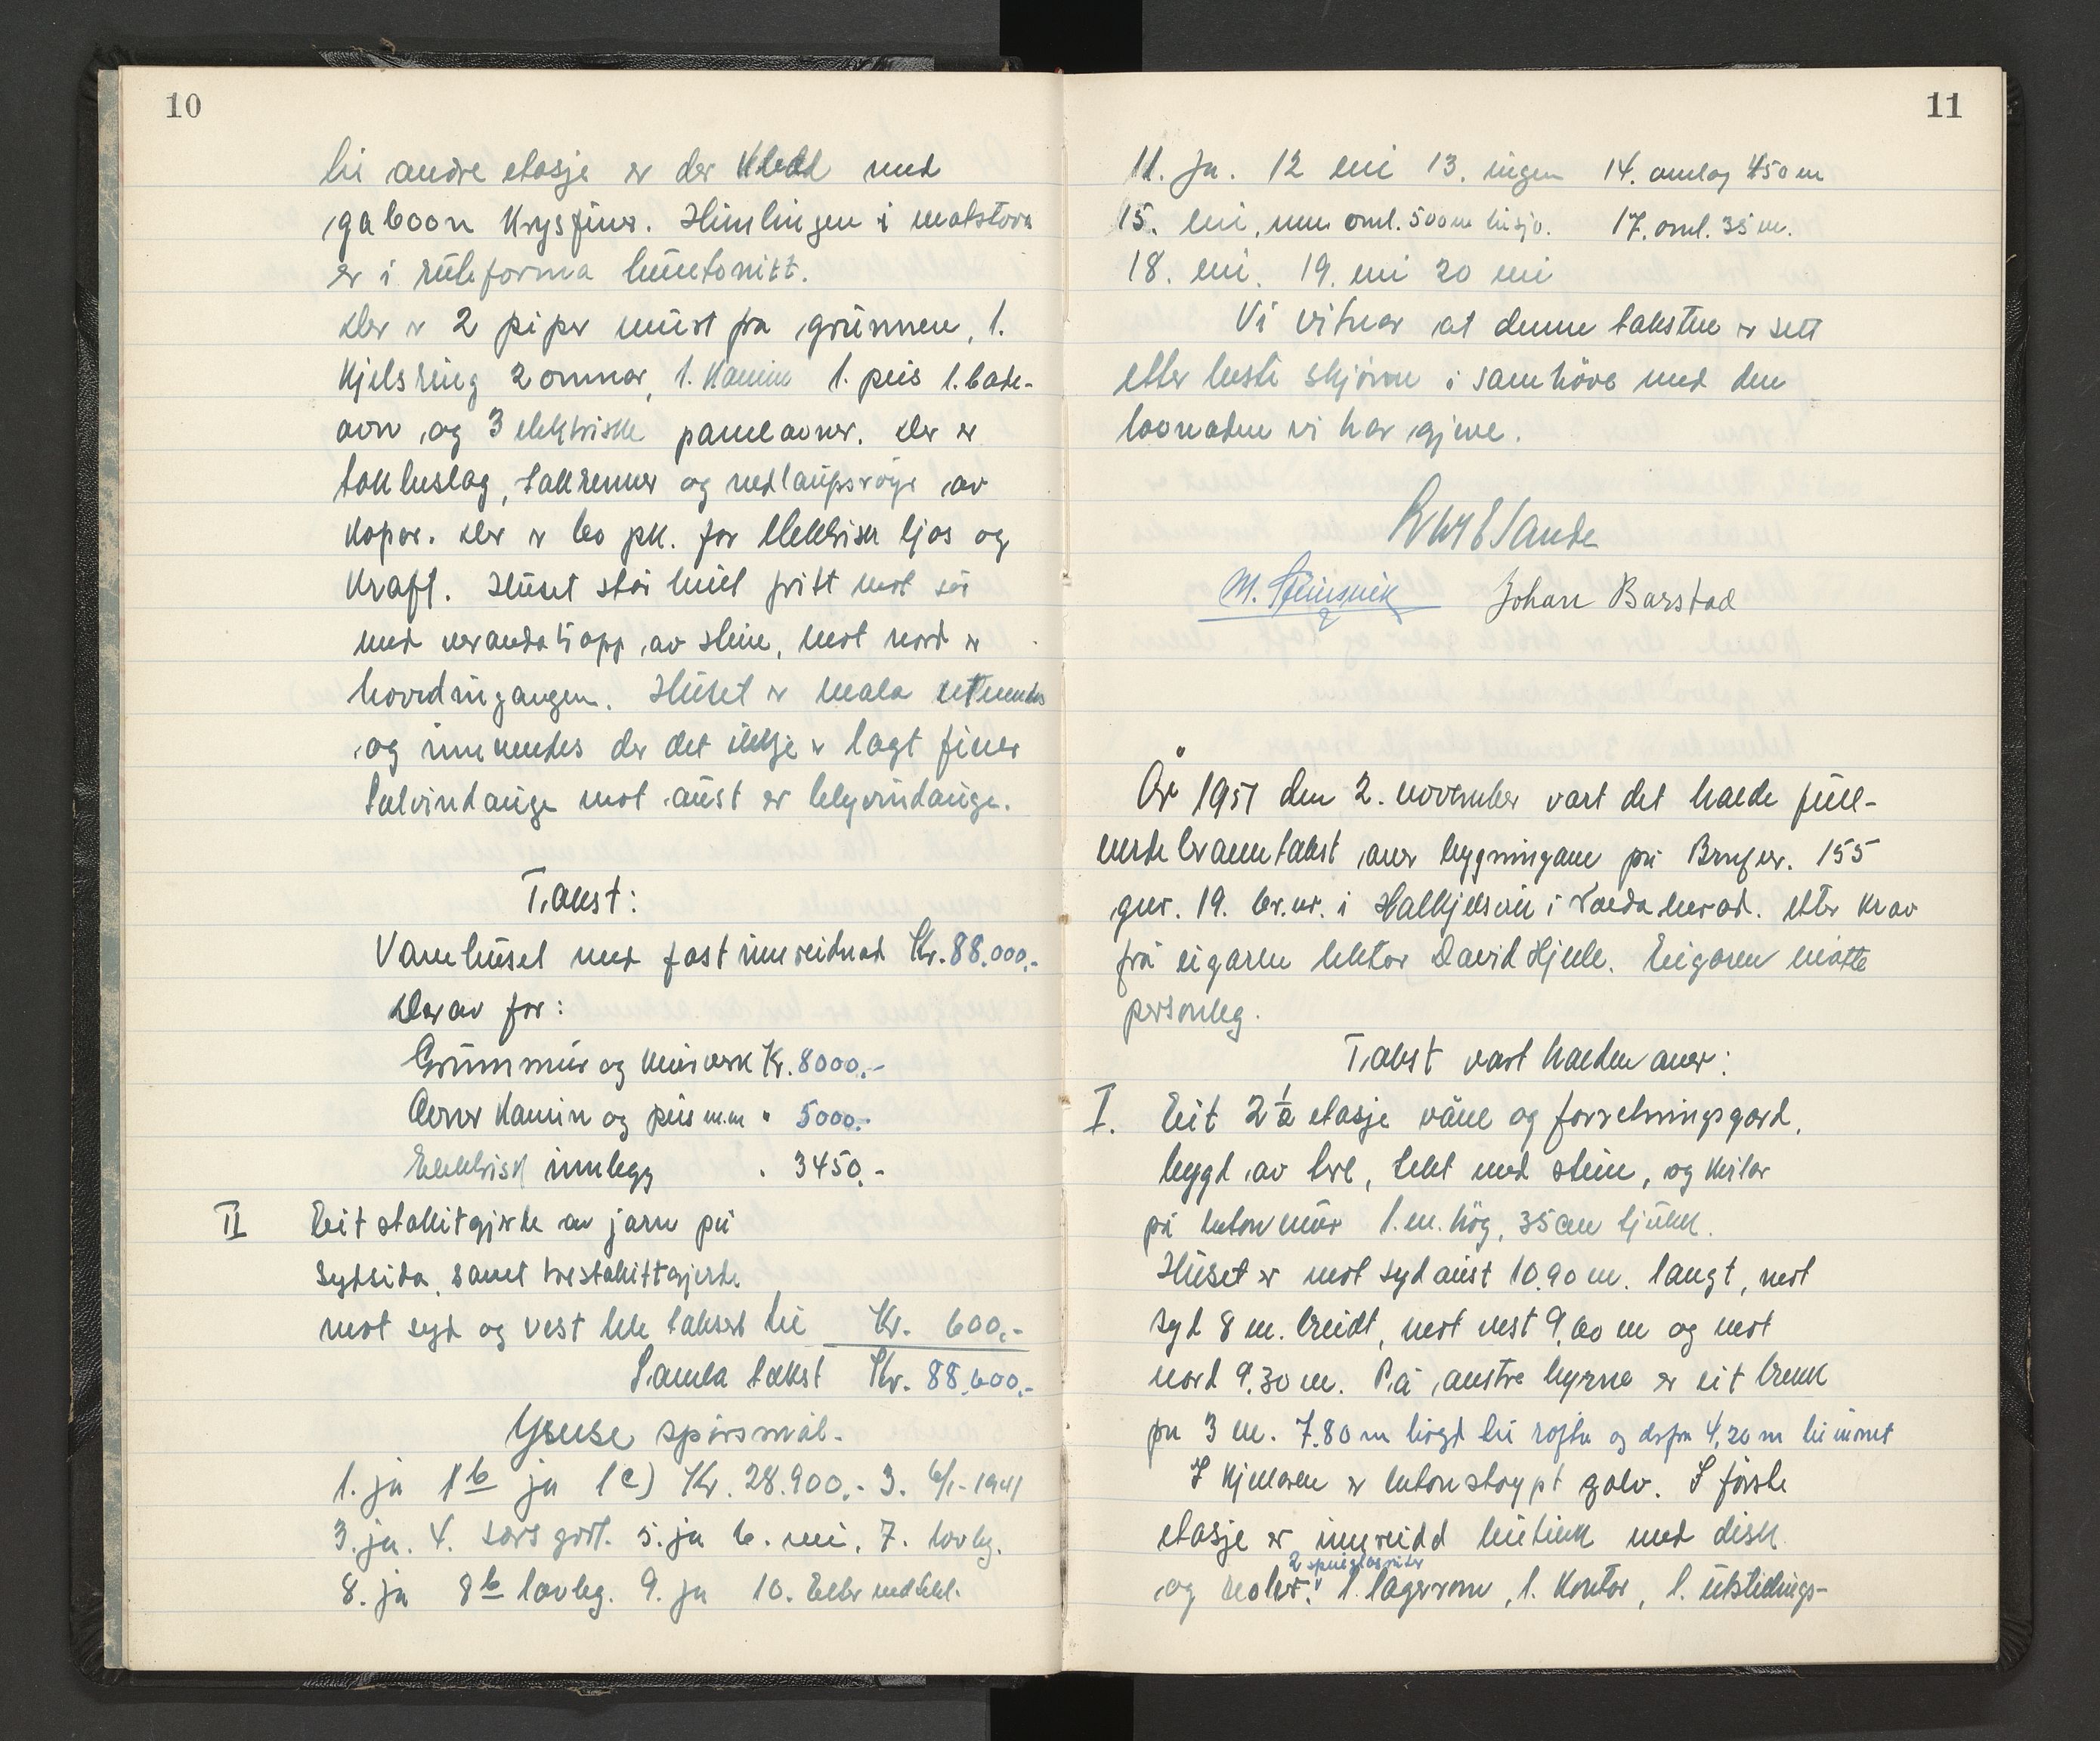 10
til andre etasje er der kledd med
gaboon krysfiner. Himlingen i matstova
er i ruteforma huntonitt.
Der er 2 piper murt fra grunnen, 1.
kjelsring 2 omnar, 1. kamin 1. peis 1. bade-
ovn og 3 elektriske panelovner. Der er
takbeslag, takrenner og nedlaupsrøyr av
kopar. Der er 60 pk. for elektrisk ljos og
kraft. Huset står heilt fritt mot sør
med verandatrapp av stein, mot nord er
hovedinngangen. Huset er mala utvendes
og innvendes der det ikkje er lagt finer
Kelvindauge mot aust er blyvindauge.
Takst:
Vanehuset med fast innreidnad Kr. 88.000.-
Derav for:
Grunnmur og murverk Kr. 8000.-
Ovner kamin og peis m.m " 5000.-
Elektrisk innlegg " 3450.-
II Eit stakitgjerde av jarn på
sydsida, samt trestakittgjerde
mot syd og vest ble taksert til Kr. 600.-
Samla takst Kr. 88.600.-
Ymse spørsmål.
1. ja 1b ja 1c) Kr. 28.900.- 3. 6/1-1941
3. ja. 4. særs godt. 5. ja 6. nei. 7. lovleg.
8. ja 8b lovleg. 9. ja 10. Etter vedtekt.
11
11. ja. 12 nei 13. ingen 14. omlag 450 m
15. nei, men oml. 500 m til sjø. 17. oml. 35 m.
18. nei. 19. nei 20 nei
Vi vitnar at denne taksten er sett
etter beste skjønn i samhøve med den
lovnaden vi har gjeve.
Knut Elsande
M. Steinsvik Johan Barstad
År 1951 den 2. november vart det halde full-
verdebranntakst over bygningane på Brnfnr. 155
gnr. 19. br.nr. i Halkjelsvik i Volda herad. etter krav
frå eigaren lektor David Hjelle. Eigaren møtte
personleg.
Takst vart halden over:
I. Eit 2½ etasje våne og forretningsgard.
bygd av tre, tekt med stein, og kviler
på betonmur 1. m. høg, 35 cm tjukk.
Huset er mot sydaust 10.90 m. langt, mot
syd 8 m. breidt, mot vest 9,60 m og mot
nord 9.30 m. På austre hyrna er eit brekk
på 3 m. 7.80 m høgd til rafta og derfra 4,20 m til mønet
I kjellaren er betonstøypt golv. I første
etasje er innreidd butikk med disk
2 speiglasruter
og reoler. 1. lagerrom, 1. kontor, 1. utstillings-